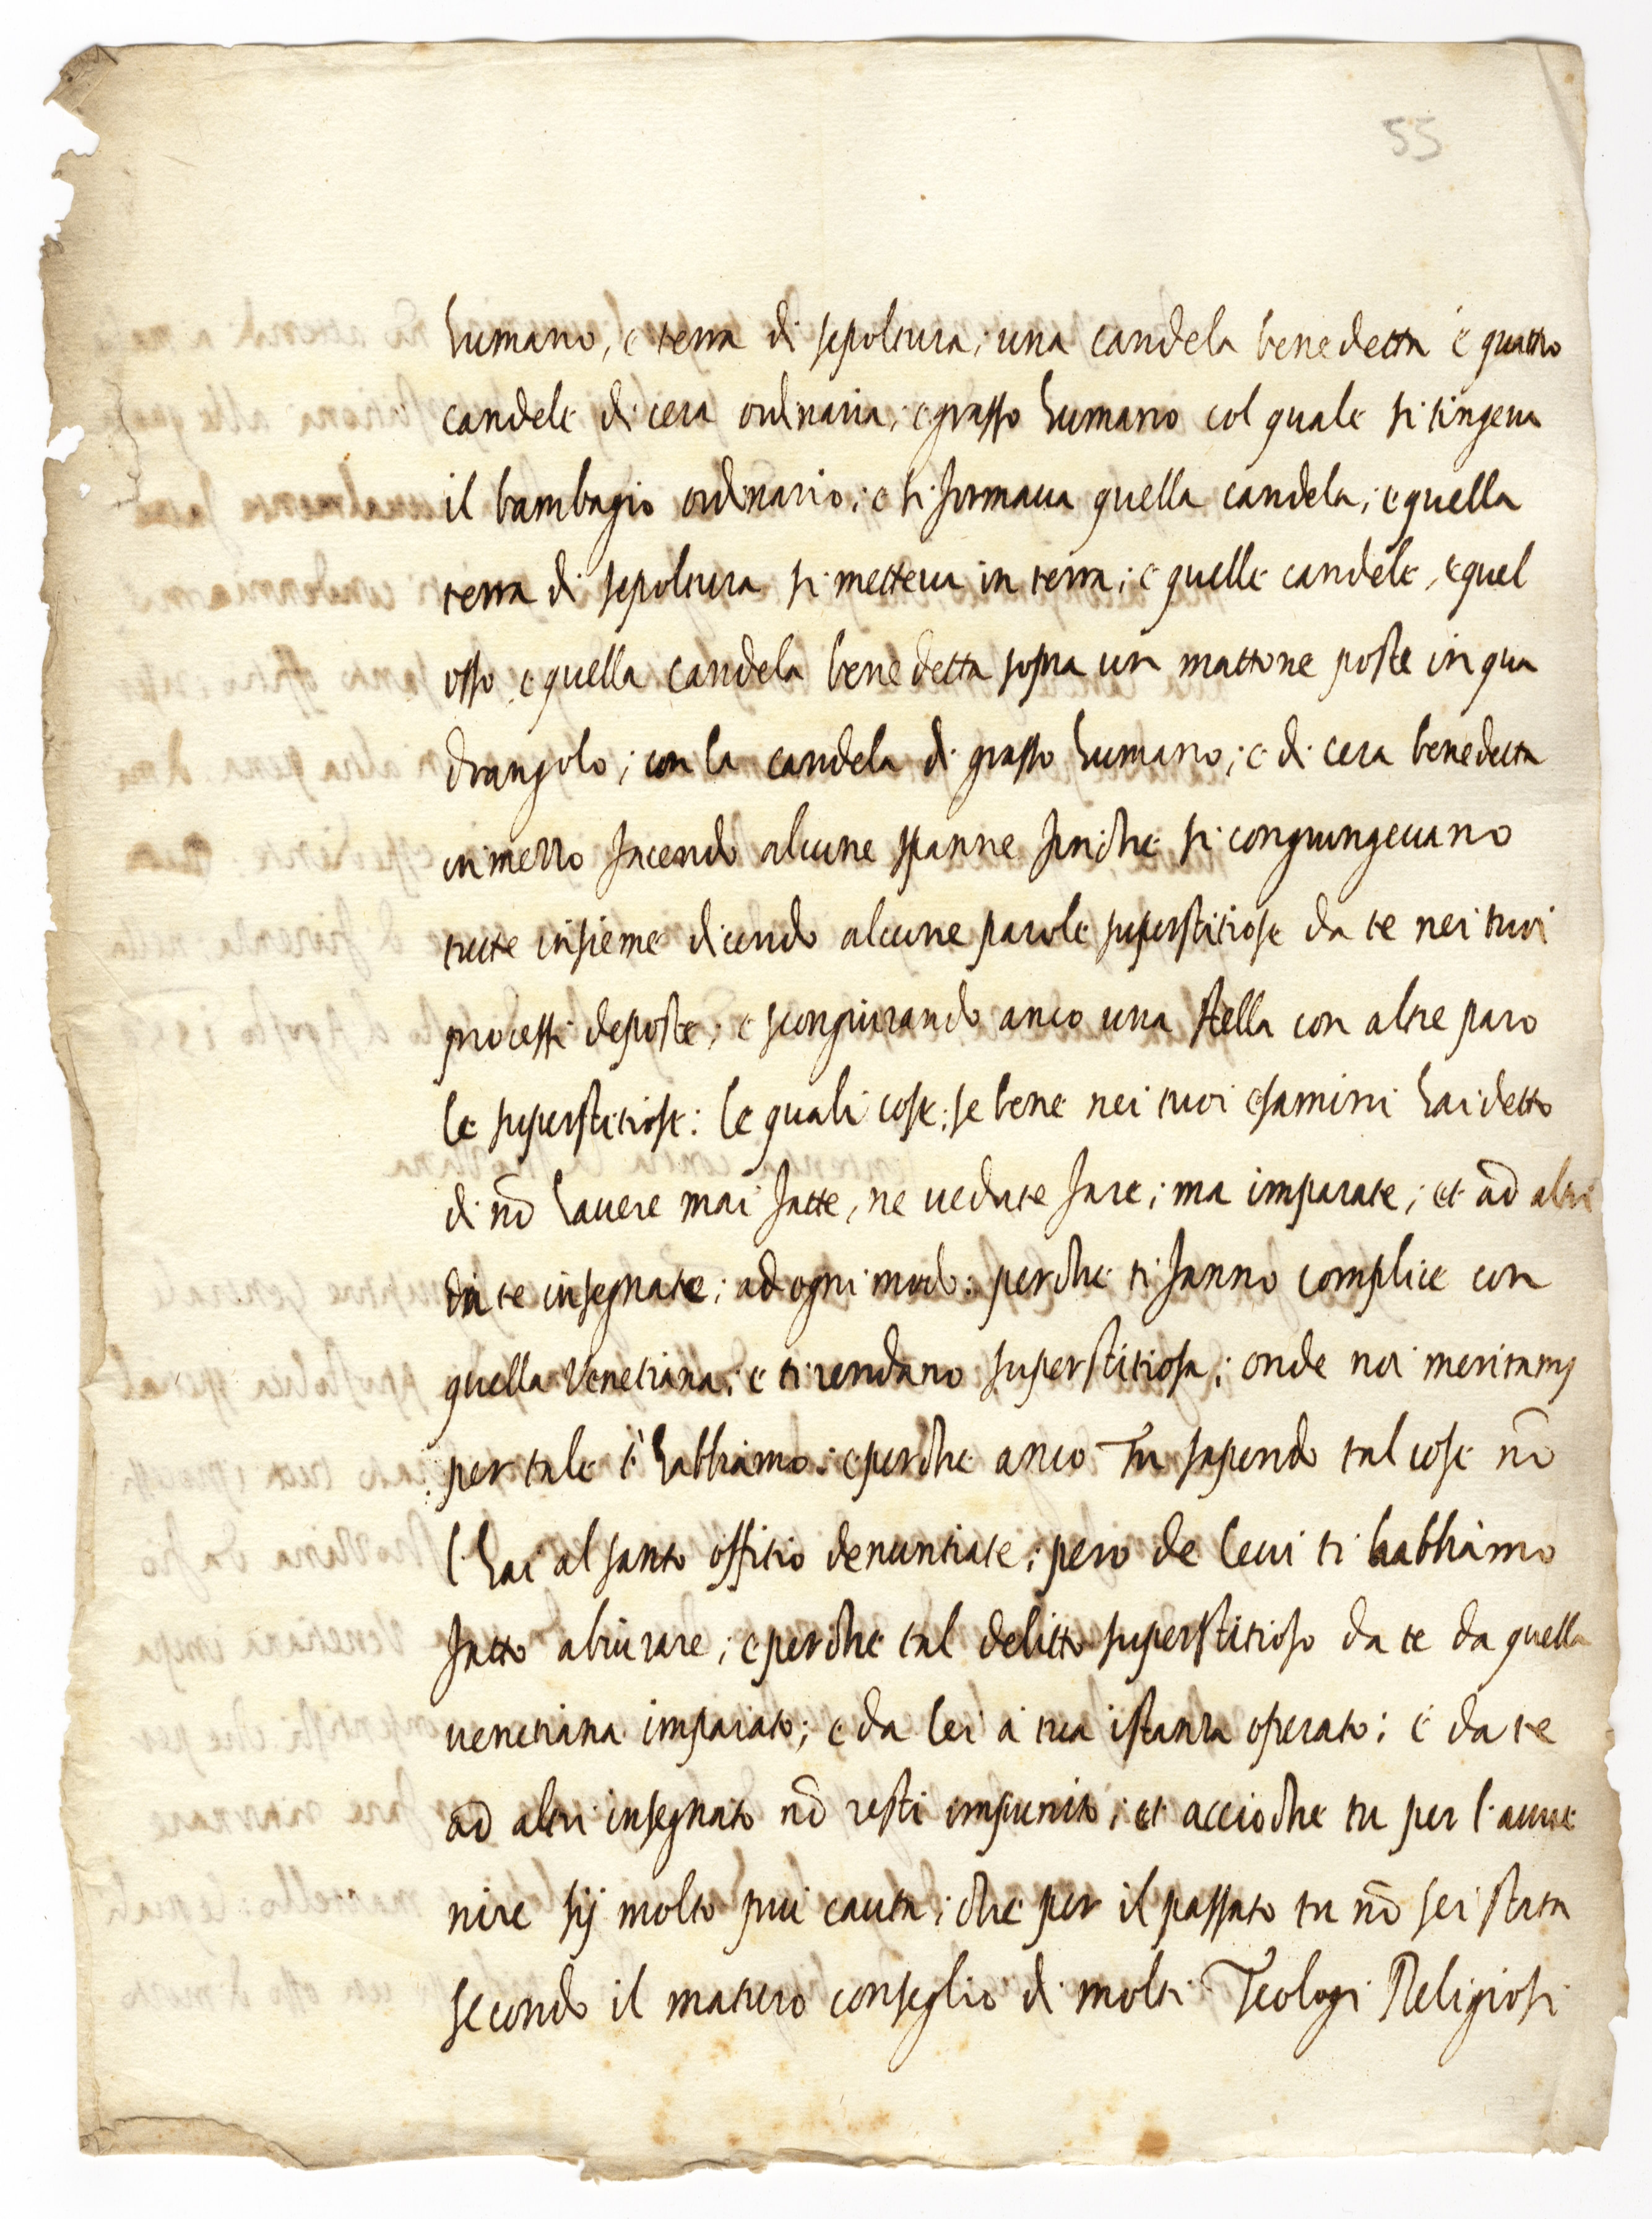 55
humano, e terra di sepoltura; una candela benedetta e quattro
candele di cera ordinaria; e grasso humano col quale si tingeua
il bambagio ordinario; e si formaua quella candela; e quella
terra di sepoltura si metteua in terra; e quelle candele, e quel
osso, e quella candela benedetta sopra un mattone poste in qua
drangolo; con la candela di grasso humano; e di cera benedetta
in mezzo facendo alcune spanne finche si congiungeuano
tutte insieme dicendo alcune parole superstitiose da te nei tuoi
processi deposte; e scongiurando anco una stella con altre paro
le superstitiose: le quali cose; se bene nei tuoi esamini hai detto
di nō hauere mai fatte, ne uedute fare; ma imparate; et ad altri
da te insegnate; ad ogni modo: perche ti fanno complice con
quella Venetiana; e ti rendano superstitiosa; onde noi
per tale t' habbiamo: e perche anco Tu sapendo tal cose nō
l'hai al santo offitio denuntiate; pero de leui ti habbiamo
fatto abiurare; e perche tal delitto superstitioso da te da quella
uenetiana imparato; e da lei à tua istanza operato; e da te
ad altri insegnato nō resti impunito; et accioche tu per l'auue
nire sij molto piu cauta; che per il passato tu nō sei stata
secondo il maturo conseglio di molti Teologi Religiosi